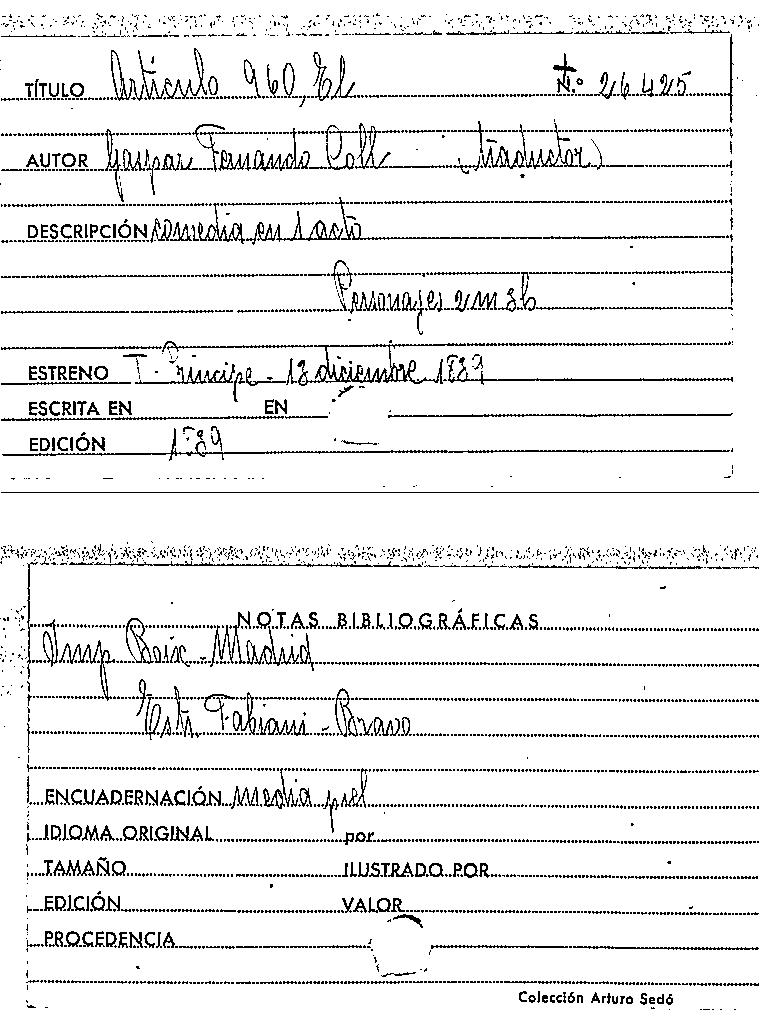 TÍTULO Artículo 960, El N.º 26425
AUTOR Gaspar Fernando Coll (traductor)
DESCRIPCIÓN comedia en 1 acto
Personajes 2 m 3 h
ESTRENO T. Príncipe - 13 diciembre 1839
ESCRITA EN EN
EDICIÓN 1839
NOTAS BIBLIOGRÁFICAS
Imp Boix - Madrid
Estr. Fabiani - Bravo
ENCUADERNACIÓN media piel
IDIOMA ORIGINAL por
TAMAÑO ILUSTRADO POR
EDICIÓN VALOR
PROCEDENCIA
Colección Arturo Sedó